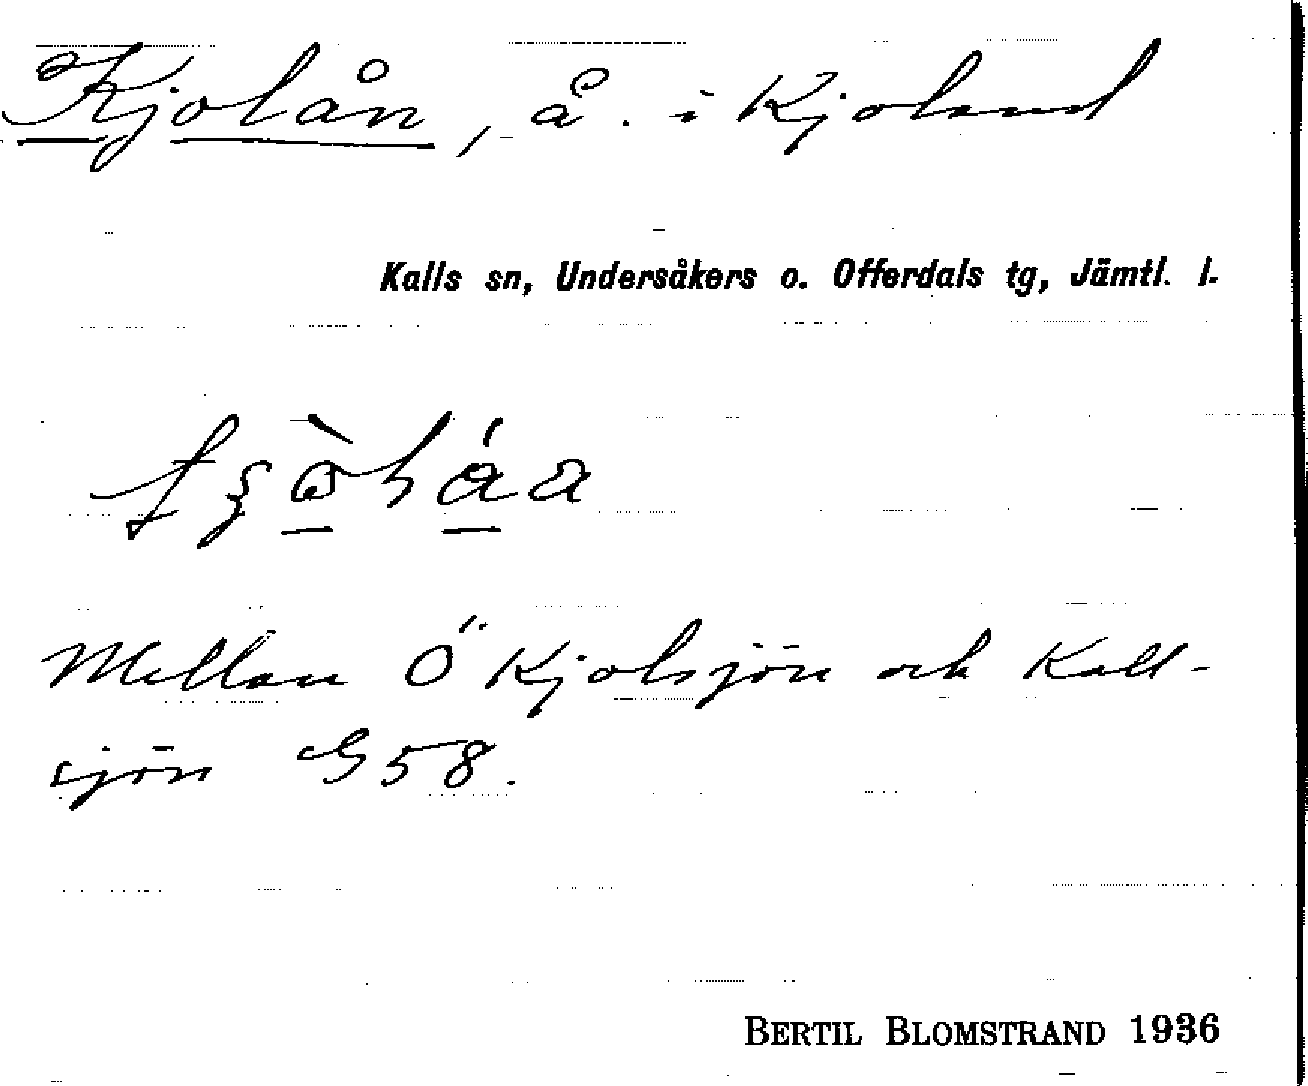 Kjolån, å. i Kjoland
Kalls sn, Undersåkers o. Offerdals tg, Jämtl. l.
Mellan Ö Kjolsjön och Kall-
sjön G58.
BERTIL BLOMSTRAND 1936